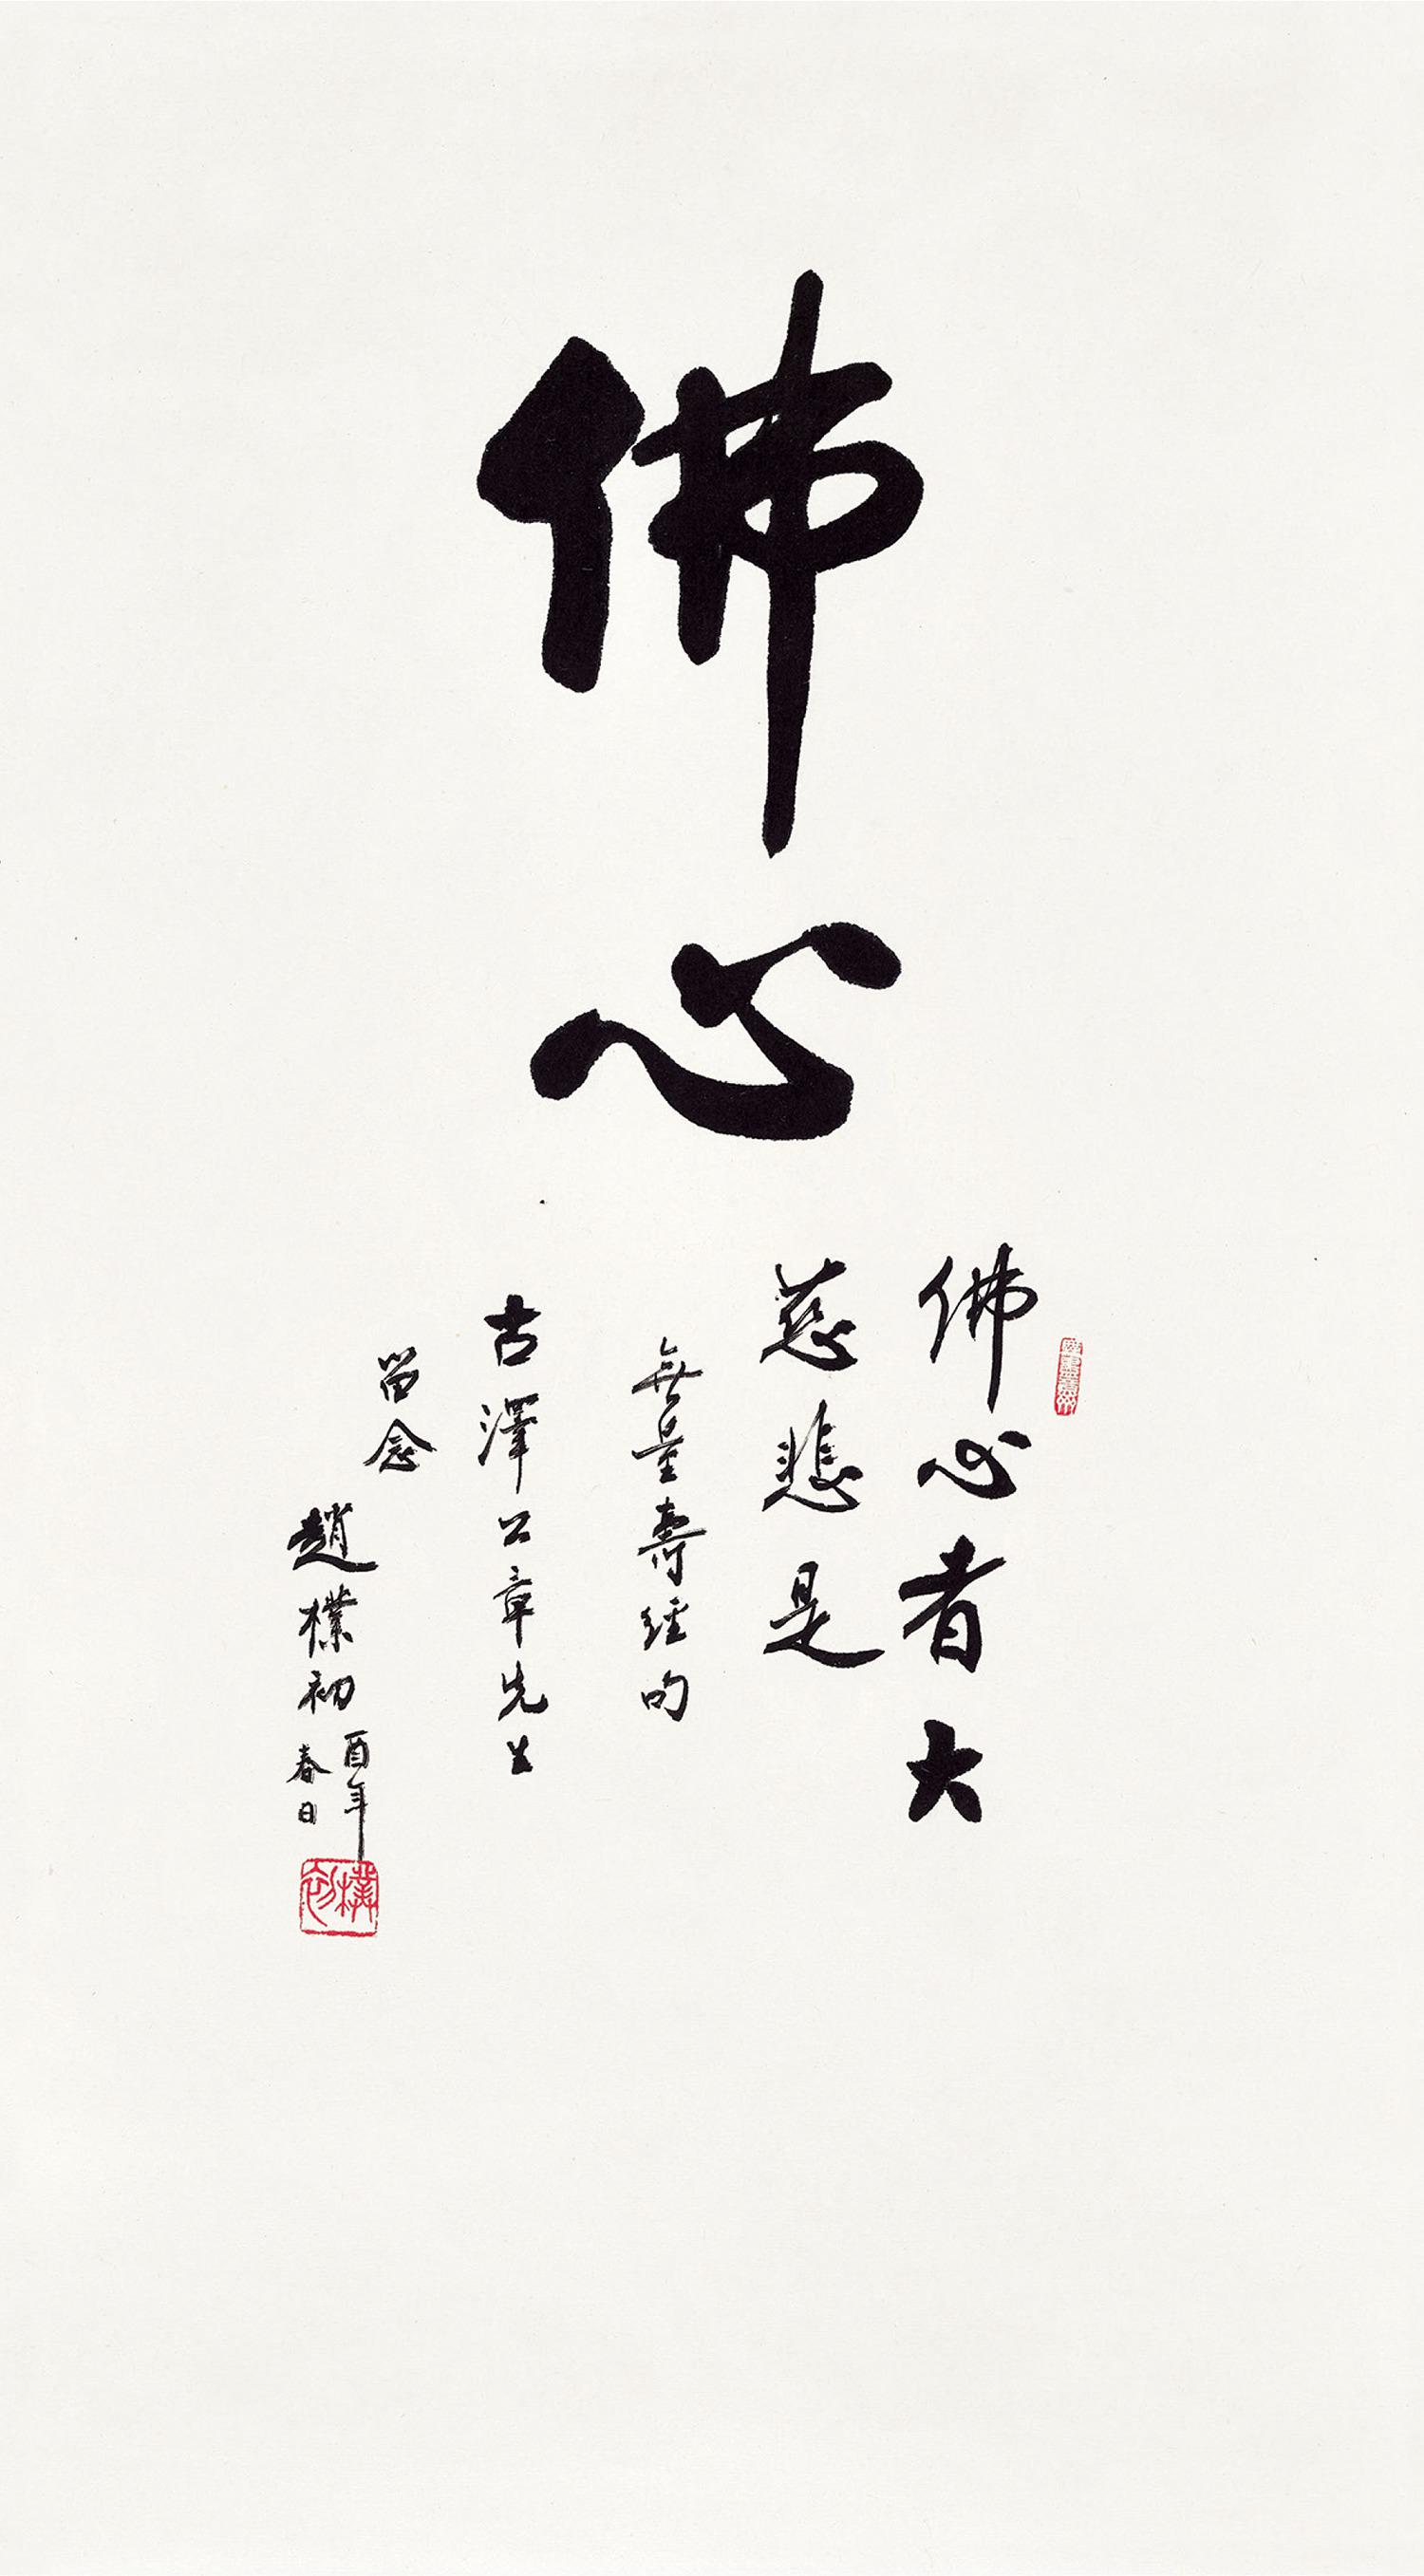 佛心
佛心者大
慈悲是
無量壽經句
古澤公章先生
留念
趙樸初
酉年
春日
樸初